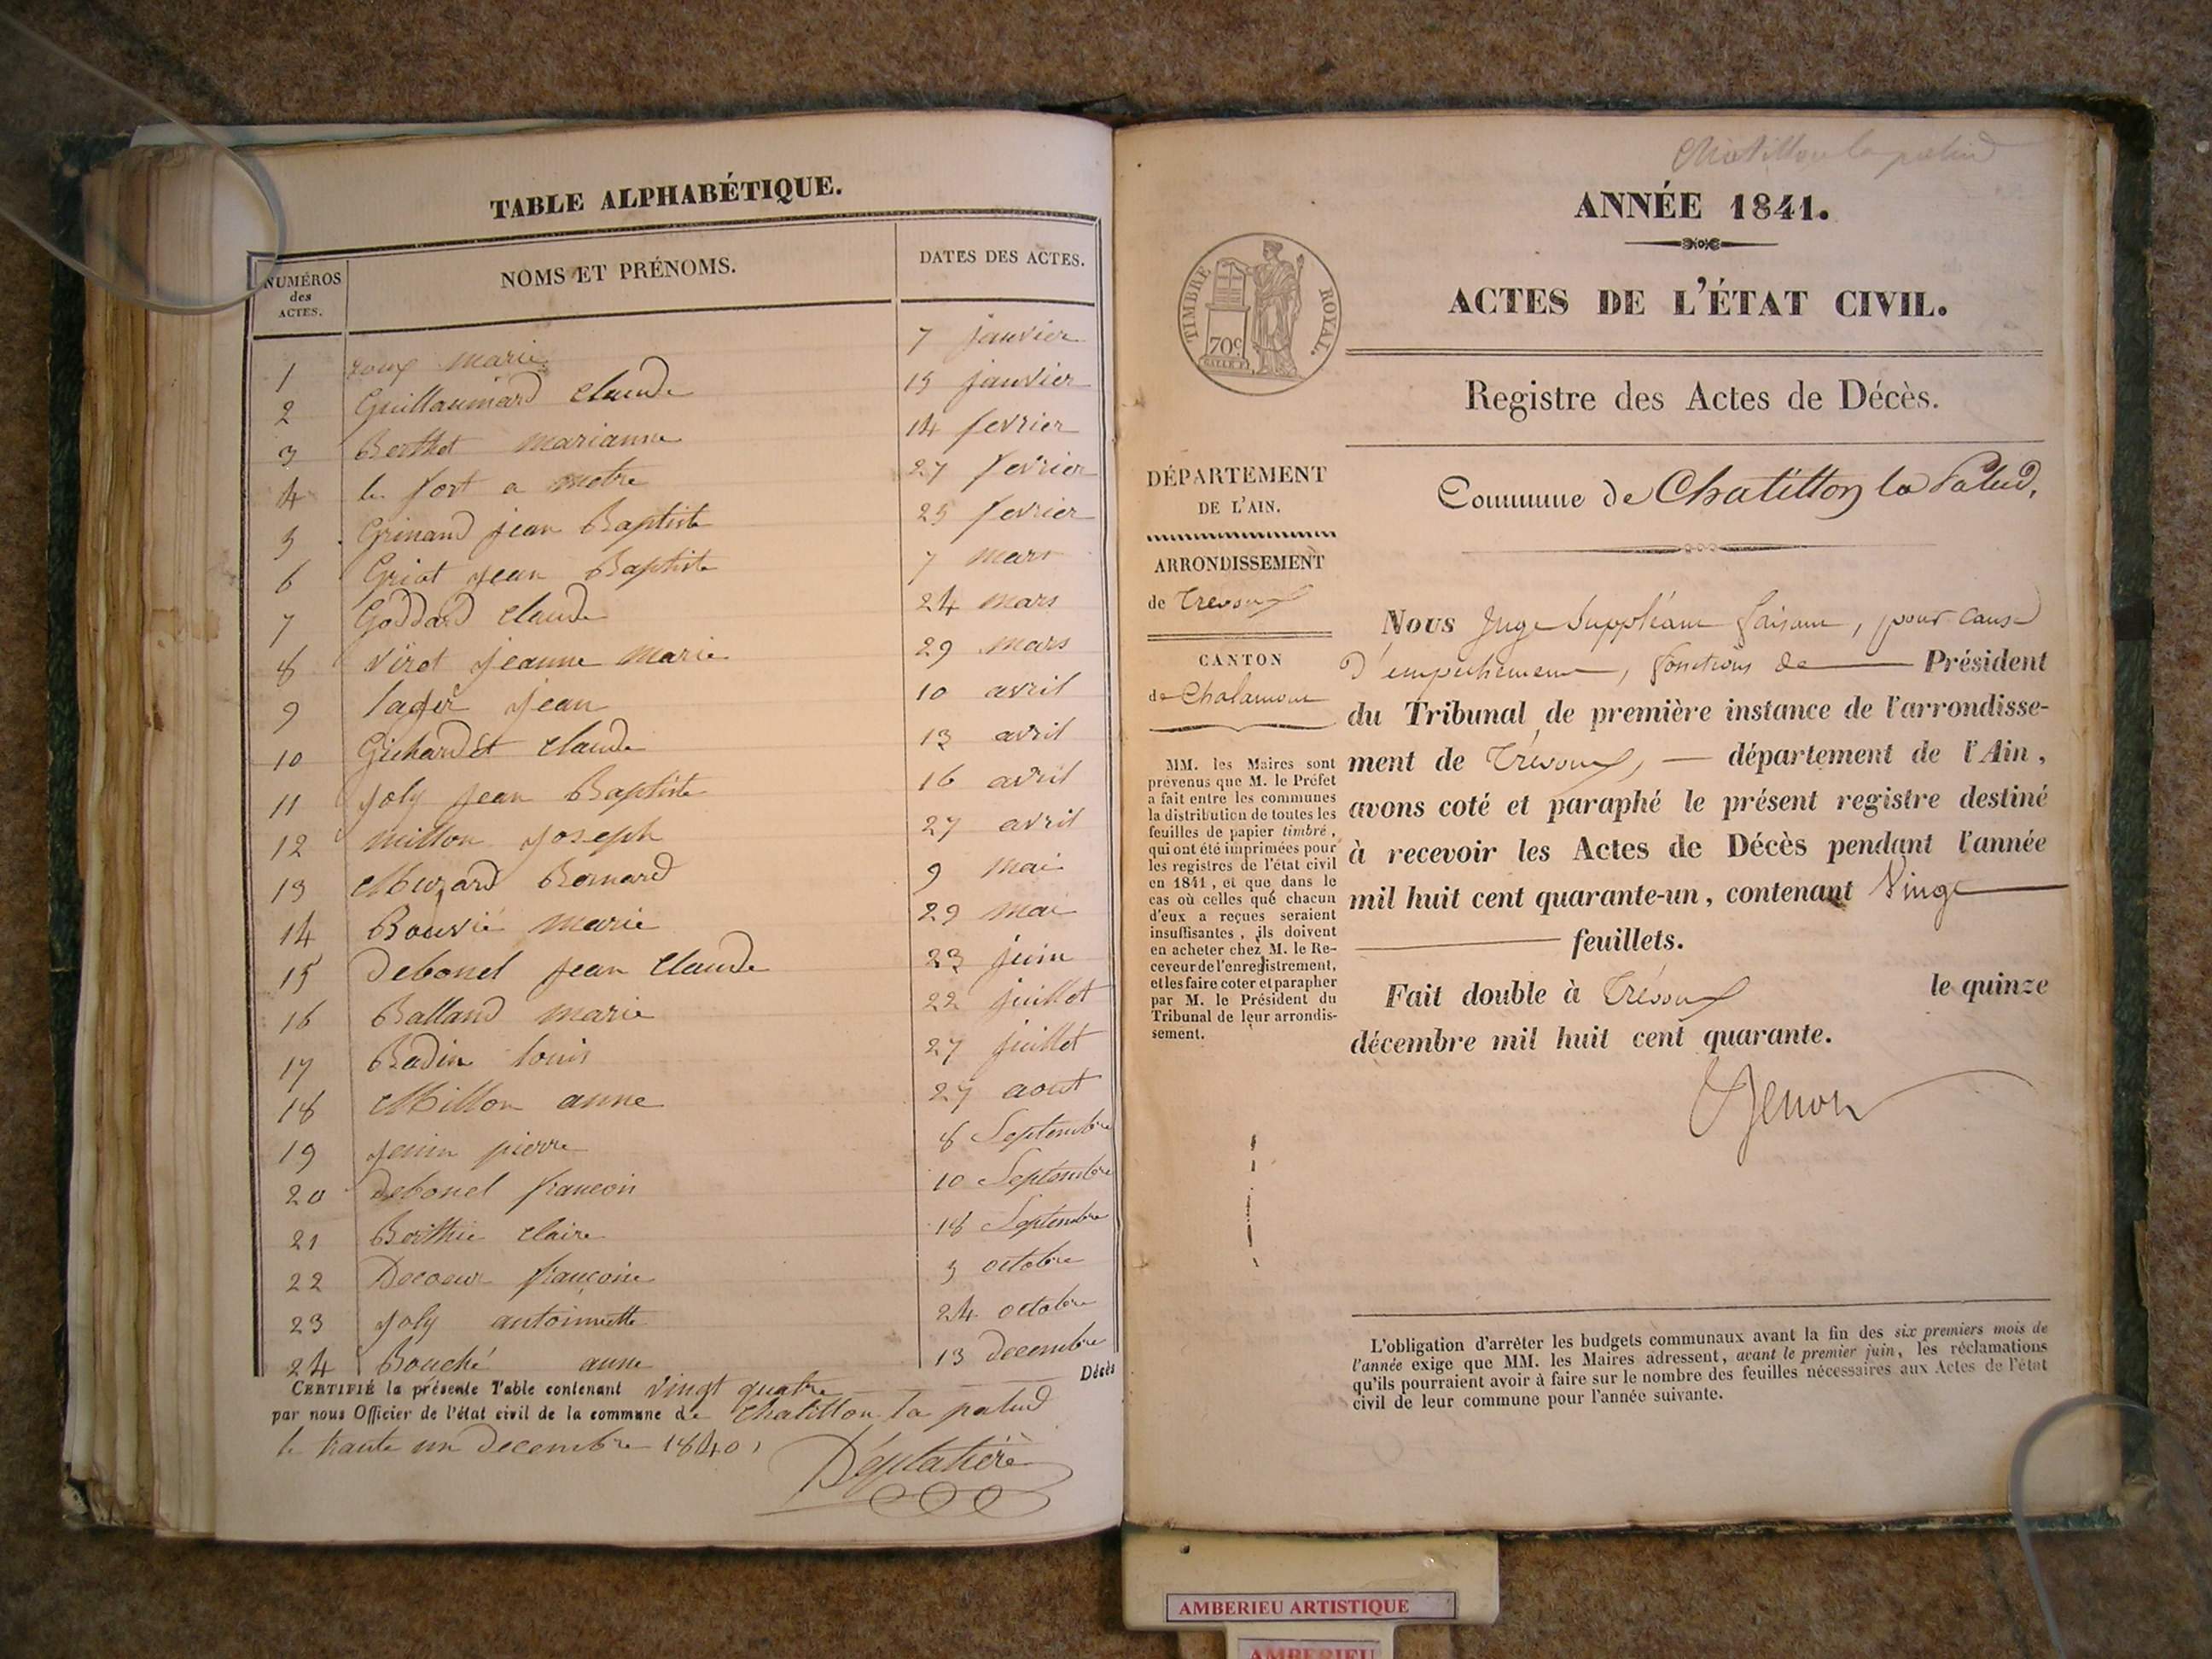 TABLE ALPHABÉTIQUE.
NUMÉROS des ACTES. NOMS ET PRÉNOMS. DATES DES ACTES.
1 roux marie 7 janvier
2 Guillaumard claude 15 janvier
3 Berthet marianne 14 fevrier
4 le fort a metre 27 fevrier
5 Grinand jean Baptiste 25 fevrier
6 Griot jean Baptiste 7 mars
7 Goddard claude 24 mars
8 Viret jeanne marie 29 mars
9 jean 10 avril
10 claude 13 avril
11 joly jean Baptiste 16 avril
12 millon joseph 27 avril
13 Murard Bernard 9 mai
14 Bouvié marie 29 mai
15 Debonel jean claude 23 juin
16 Balland marie 22 juillet
17 Badin louis 27 juillet
18 Millon anne 27 aout
19 jenin pierre 8 Septembre
20 Debonel francois 10 Septembre
21 Berthie claire 18 Septembre
22 Decoeur françoise 3 octobre
23 joly antoinette 24 octobre
24 Bouché anne 13 decembre
CERTIFIÉ la présente Table contenant vingt quatre Décès
par nous Officier de l'état civil de la commune de chatillon la palud
le trante un decembre 1840,
Chatillon la palud
ANNÉE 1841.
ACTES DE L'ÉTAT CIVIL.
TIMBRE ROYAL.
70c
Registre des Actes de Décès.
Commune de Chatillon la Palud.
DÉPARTEMENT
DE L'AIN.
ARRONDISSEMENT
de Trévoux
CANTON
de Chalamont
MM. les Maires sont
prévenus que M. le Préfet
a fait entre les communes
la distribution de toutes les
feuilles de papier timbré,
qui ont été imprimées pour
les registres de l'état civil
en 1841, et que dans le
cas où celles que chacun
d'eux a reçues seraient
insuffisantes, ils doivent
en acheter chez M. le Re-
ceveur de l'enregistrement,
et les faire coter et parapher
par M. le Président du
Tribunal de leur arrondis-
sement.
Nous Juge Suppléant faisant, pour cause
d'empêchement, fonctions de Président
du Tribunal de première instance de l'arrondisse-
ment de Trévoux, département de l'Ain,
avons coté et paraphé le présent registre destiné
à recevoir les Actes de Décès pendant l'année
mil huit cent quarante-un, contenant Vingt
feuillets.
Fait double à Trévoux le quinze
décembre mil huit cent quarante.
L'obligation d'arrêter les budgets communaux avant la fin des six premiers mois de
l'année exige que MM. les Maires adressent, avant le premier juin, les réclamations
qu'ils pourraient avoir à faire sur le nombre des feuilles nécessaires aux Actes de l'état
civil de leur commune pour l'année suivante.
AMBERIEU ARTISTIQUE
AMBERIEU